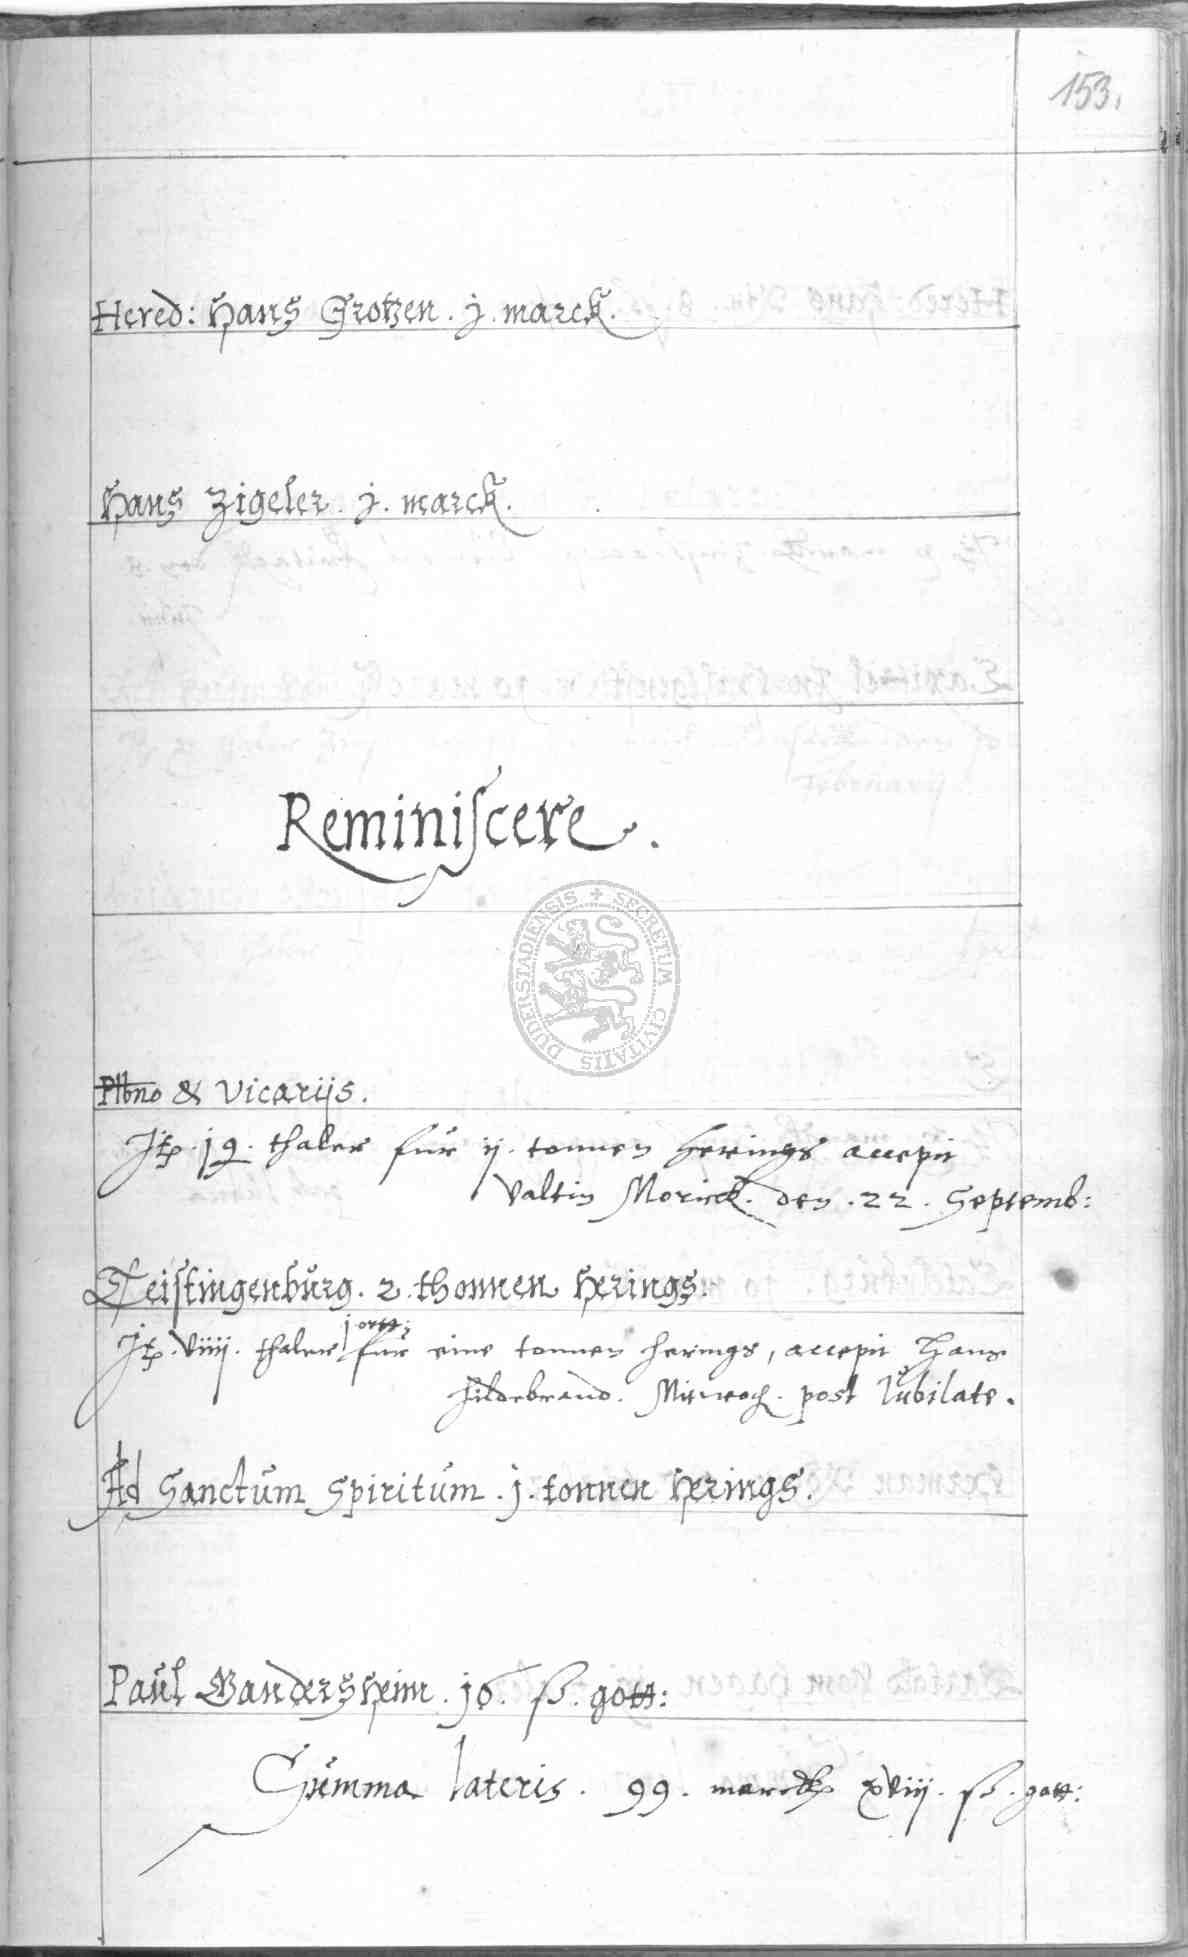 153.
Hered: Hans Grotzen . j . marck.
Hans Zigeler . j . marck.
Reminiscere.
SECRETUM CIVITATIS DUDERSTADIENSIS
Plbno & Vicarijs.
Jtz . 19 . thaler für ij . tonnen herings accepit
Valtin Morick . den . 22 . Septemb:
Teistingenburg . 2 . thonnen herings.
j ortt:
Jtz . viiij . thaler für eine tonnen herings, accepit Hans
Hildebrand . Mitwoch . post Iubilate.
Ad Sanctum Spiritum . j . tonnen herings.
Paul Gandersheim . 10 . ß . gott:
Summa lateris . 99 . marck xviij . ß . gott: